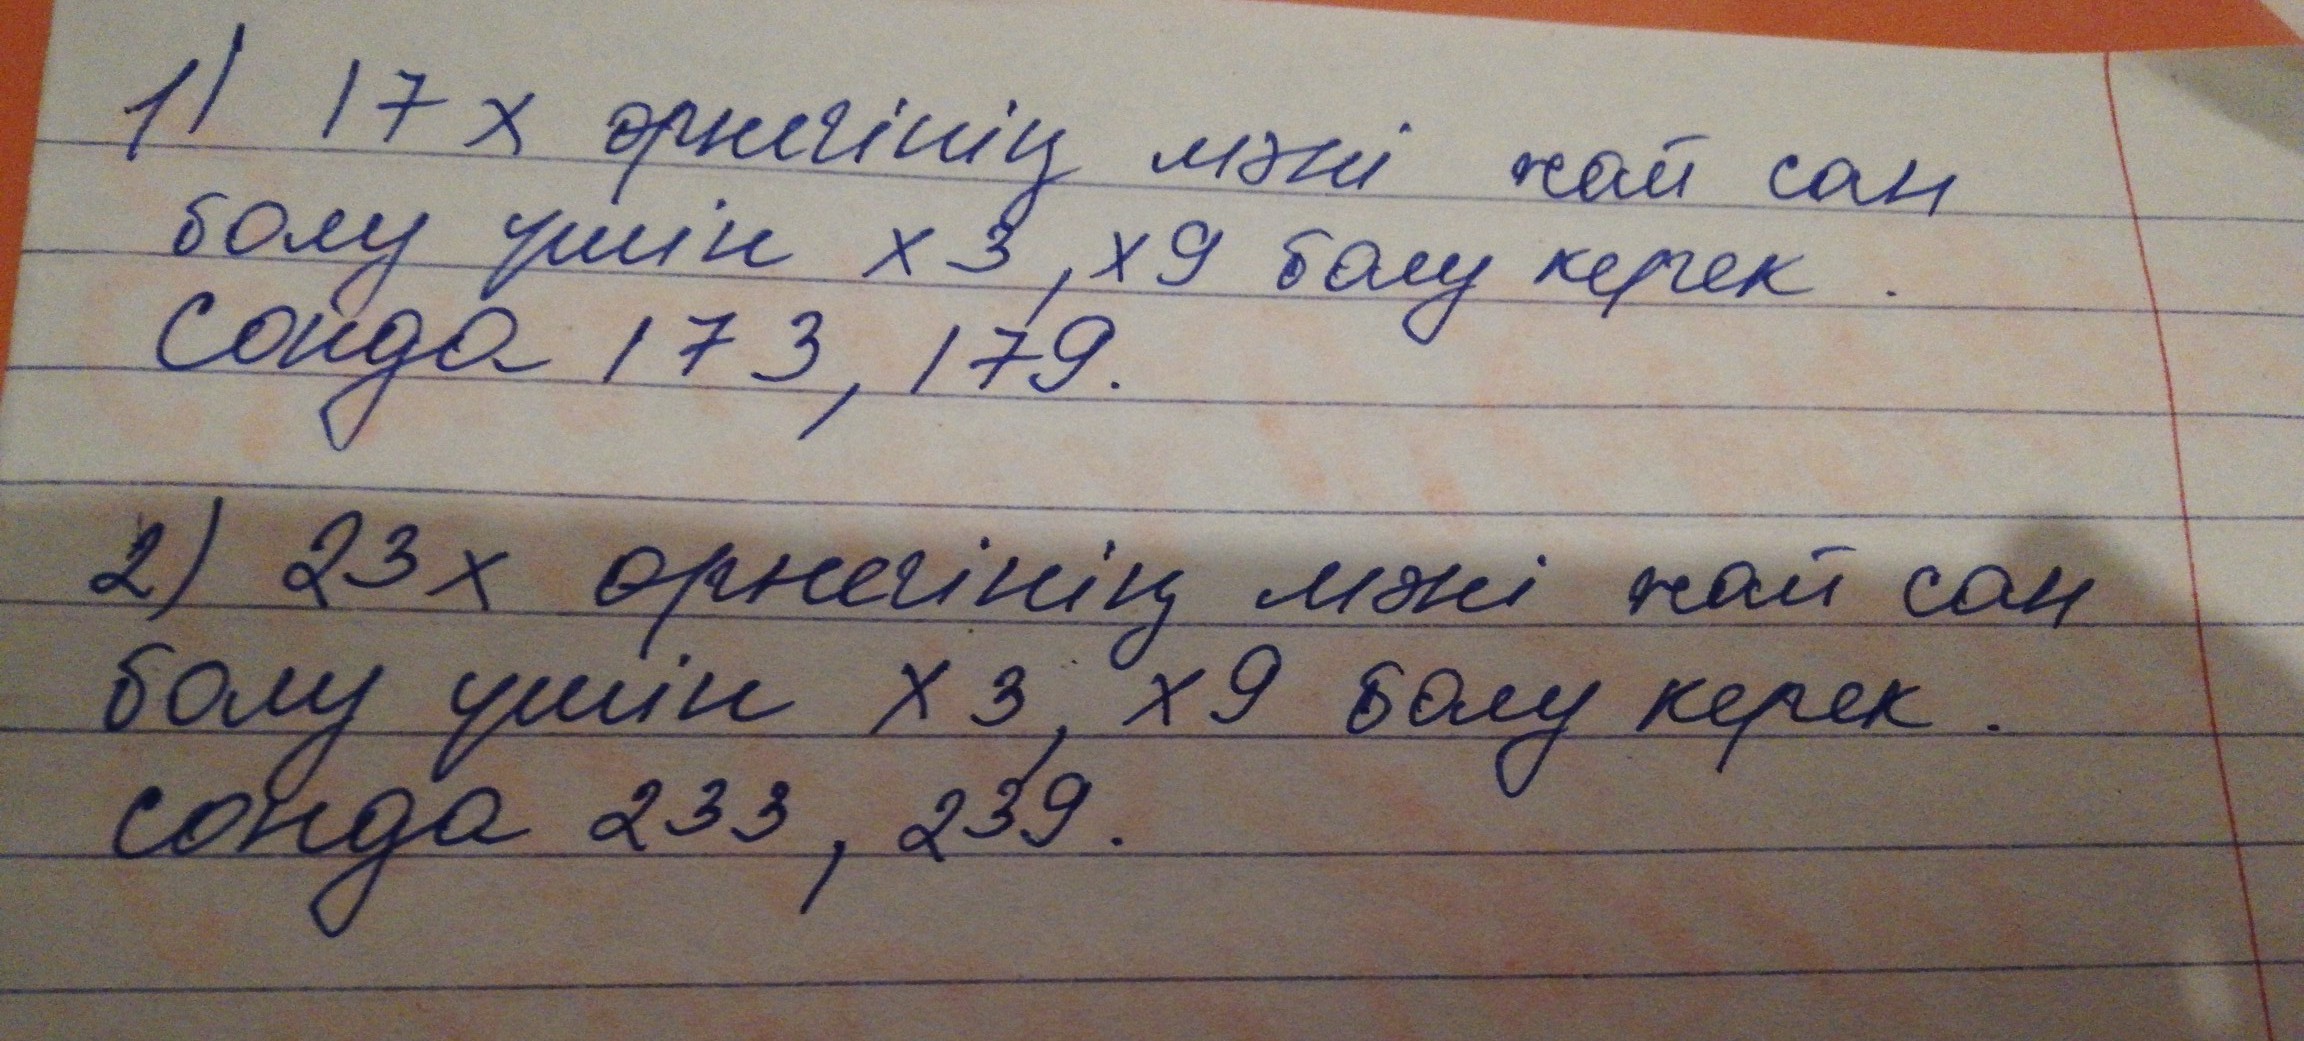 1) 17х өрнегінің мәні жай сан
болу үшін х3, х9 болу керек.
Сонда 173, 179.
2) 23х өрнегінің мәні жай сан
болу үшін х3, х9 болу керек.
сонда 233, 239.